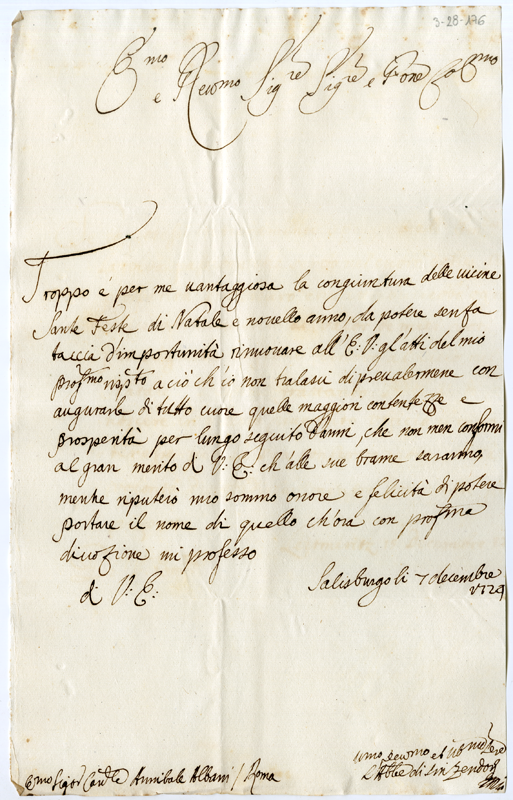 3-28-176
E^mo e Rev^mo Sig^re Sig^re e Pone Co^mo
Troppo é per me vantaggiosa la congiuntura delle vicine
Sante Feste di Natale e novello anno, da potere senza
taccia d'importunità rinuovare all'E: V: gl'atti del mio
prof^mo risp^to a ciò ch'io non tralasci di prevalermene con
augurarle di tutto cuore quelle maggiori contentezze e
prosperità per lungo seguito d'anni, che non men conformi
al gran merito di V: E: ch'alle sue brame saranno,
mentre riputerò mio sommo onore e felicità di potere
portare il nome di quello ch'ora con prof^ma
divozione mi professo
di V: E:
Salisburgo li 7 decembre
1724
Umo Devmo et
L'Abbe di Sinzendorf
E^mo Sigor Cardle Annibale Albani / Roma